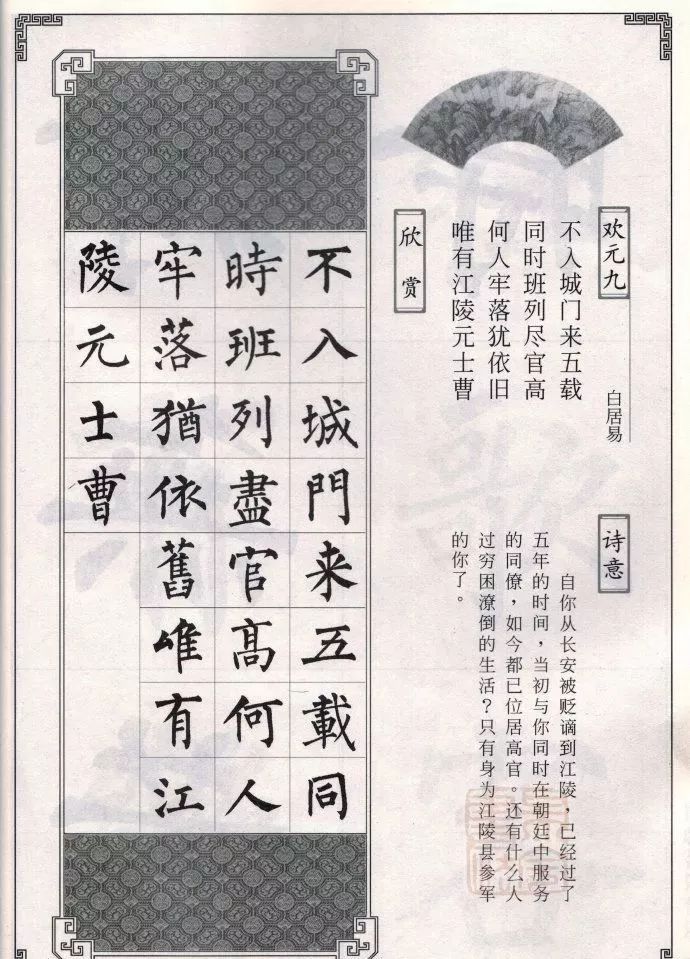 欢元九
白居易
不入城门来五载
同时班列尽官高
何人牢落犹依旧
唯有江陵元士曹
诗意
自你从长安被贬谪到江陵，已经过了
五年的时间，当初与你同时在朝廷中服务
的同僚，如今都已位居高官。还有什么人
过穷困潦倒的生活？只有身为江陵县参军
的你了。
欣赏
不入城門来五載同
時班列盡官高何人
牢落猶依舊唯有江
陵元士曹